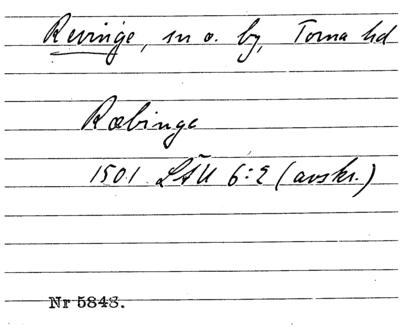 Revinge, sn o. by, Torna hd
Ræbinge
1501 LÄU 6:2 (avskr.)
Nr 5848.